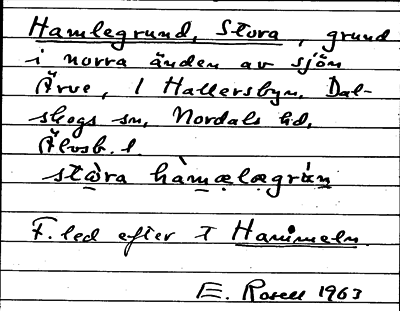 Hamlegrund, Stora, grund
i norra änden av sjön
Ärve, I Hallersbyn. Dal-
skogs sn, Nordals hd,
Älvsb. l.
stòra hàmælægrún
F. led efter T Hammeln
E. Rosell 1963